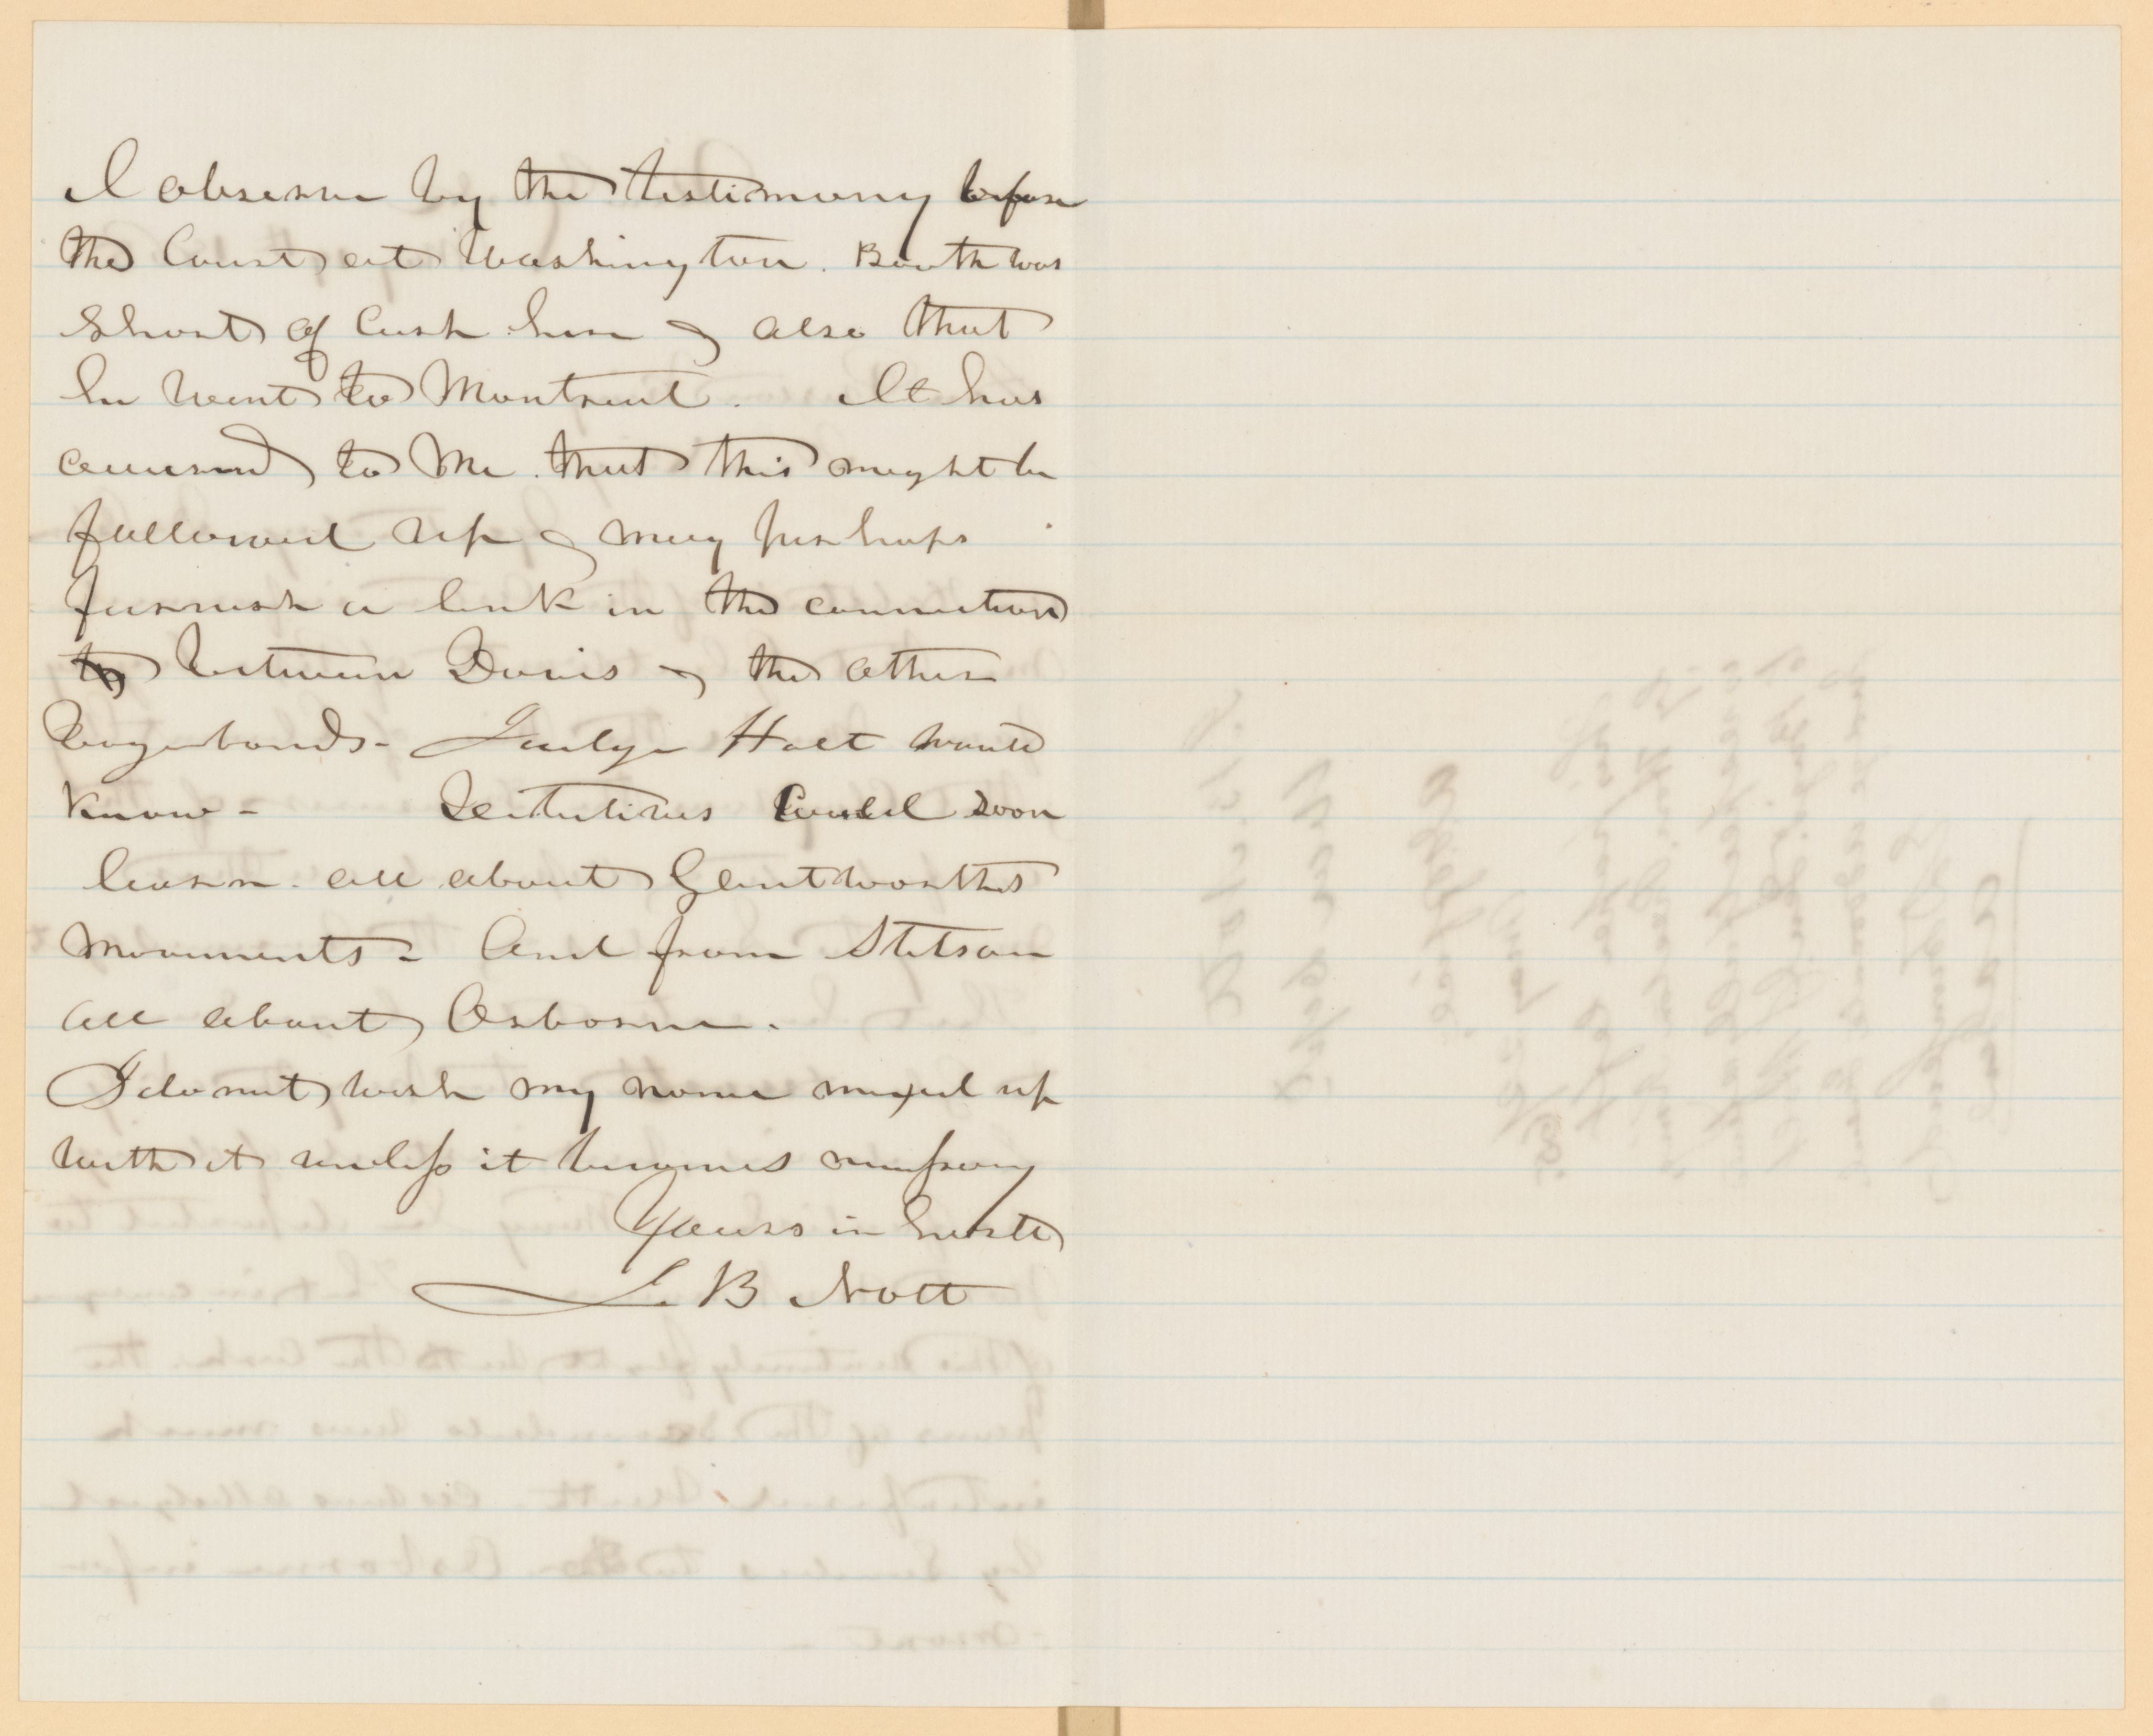 I observe by the testimony before
the Court at Washington. Booth was
short of cash here & also that
he went to Montreal. It has
occurred to me that this might be
followed up & may perhaps
furnish a link in the connection
between Davis & the other
vagabonds - Judge Holt wants
know - Detectives could soon
learn all about Gentworths
movements - And from Stetson
all about Osborne.
I do not wish my name mixed up
with it unless it becomes necessary
Yours in haste
L B Nott